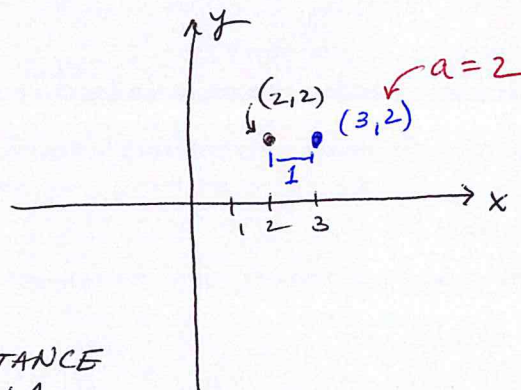 y
a = 2
(2,2)
(3,2)
1
x
1 2 3
TANCE